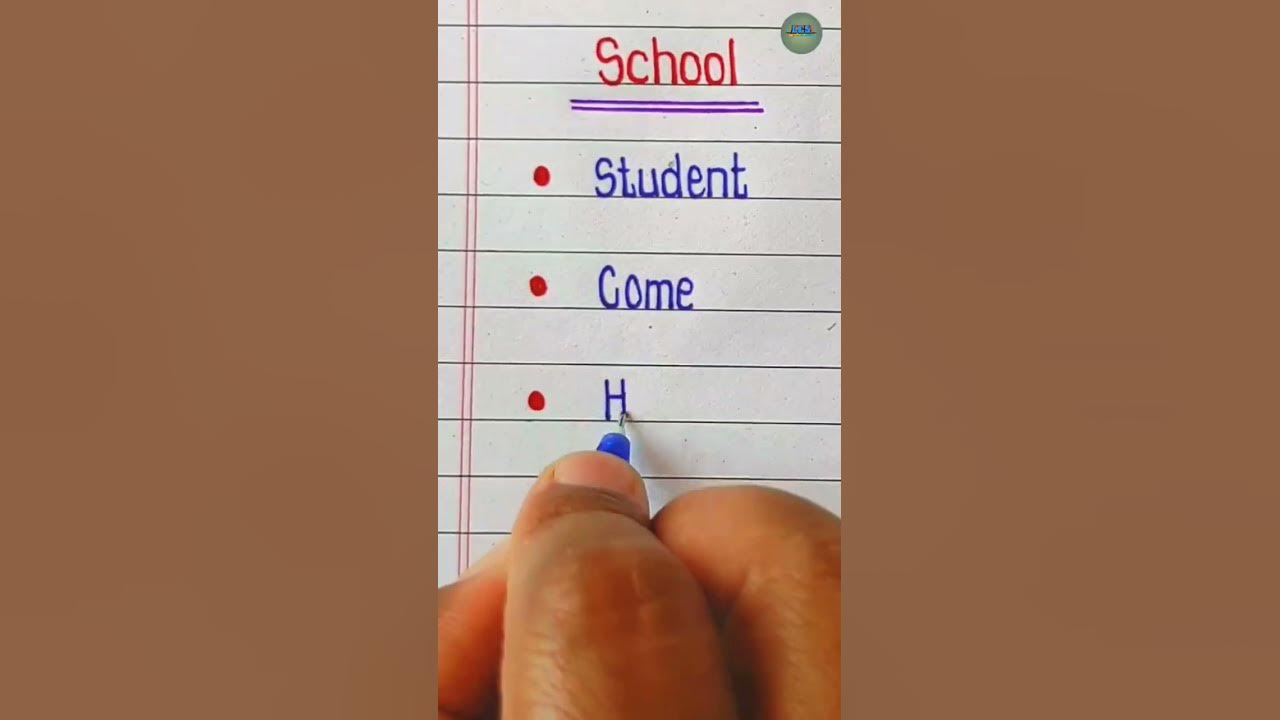 School
• Student
• Come
• H